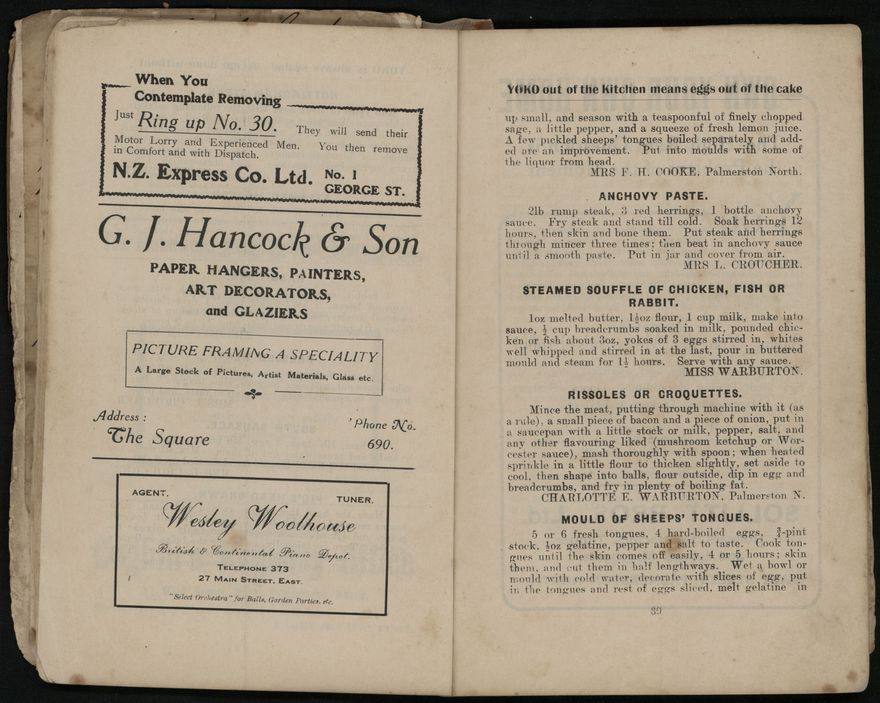 When You
Contemplate Removing
Just Ring up No. 30. They will send their
Motor Lorry and Experienced Men. You then remove
in Comfort and with Dispatch.
N.Z. Express Co. Ltd. No. 1
GEORGE ST.
G. J. Hancock & Son
PAPER HANGERS, PAINTERS,
ART DECORATORS,
and GLAZIERS
PICTURE FRAMING A SPECIALITY
A Large Stock of Pictures, Artist Materials, Glass etc.
Address :
The Square
'Phone No.
690.
AGENT.
TUNER.
Wesley Woolhouse
British & Continental Piano Depot.
TELEPHONE 373
27 MAIN STREET, EAST.
"Select Orchestra" for Balls, Garden Parties, etc.
YOKO out of the Kitchen means eggs out of the cake
up small, and season with a teaspoonful of finely chopped
sage, a little pepper, and a squeeze of fresh lemon juice.
A few pickled sheeps' tongues boiled separately and add-
ed are an improvement. Put into moulds with some of
the liquor from head.
MRS F. H. COOKE, Palmerston North.
ANCHOVY PASTE.
2lb rump steak, 3 red herrings, 1 bottle anchovy
sauce. Fry steak and stand till cold. Soak herrings 12
hours, then skin and bone them. Put steak and herrings
through mincer three times; then beat in anchovy sauce
until a smooth paste. Put in jar and cover from air.
MRS L. CROUCHER.
STEAMED SOUFFLE OF CHICKEN, FISH OR
RABBIT.
1oz melted butter, 1½oz flour, 1 cup milk, make into
sauce, ½ cup breadcrumbs soaked in milk, pounded chic-
ken or fish about 3oz, yokes of 3 eggs stirred in, whites
well whipped and stirred in at the last, pour in buttered
mould and steam for 1½ hours. Serve with any sauce.
MISS WARBURTON.
RISSOLES OR CROQUETTES.
Mince the meat, putting through machine with it (as
a rule), a small piece of bacon and a piece of onion, put in
a saucepan with a little stock or milk, pepper, salt, and
any other flavouring liked (mushroom ketchup or Wor-
cester sauce), mash thoroughly with spoon; when heated
sprinkle in a little flour to thicken slightly, set aside to
cool, then shape into balls, flour outside, dip in egg and
breadcrumbs, and fry in plenty of boiling fat.
CHARLOTTE E. WARBURTON, Palmerston N.
MOULD OF SHEEPS' TONGUES.
5 or 6 fresh tongues, 4 hard-boiled eggs, ¾-pint
stock, ½oz gelatine, pepper and salt to taste. Cook ton-
gues until the skin comes off easily, 4 or 5 hours; skin
them, and cut them in half lengthways. Wet a bowl or
mould with cold water, decorate with slices of egg, put
in the tongues and rest of eggs sliced, melt gelatine in
39